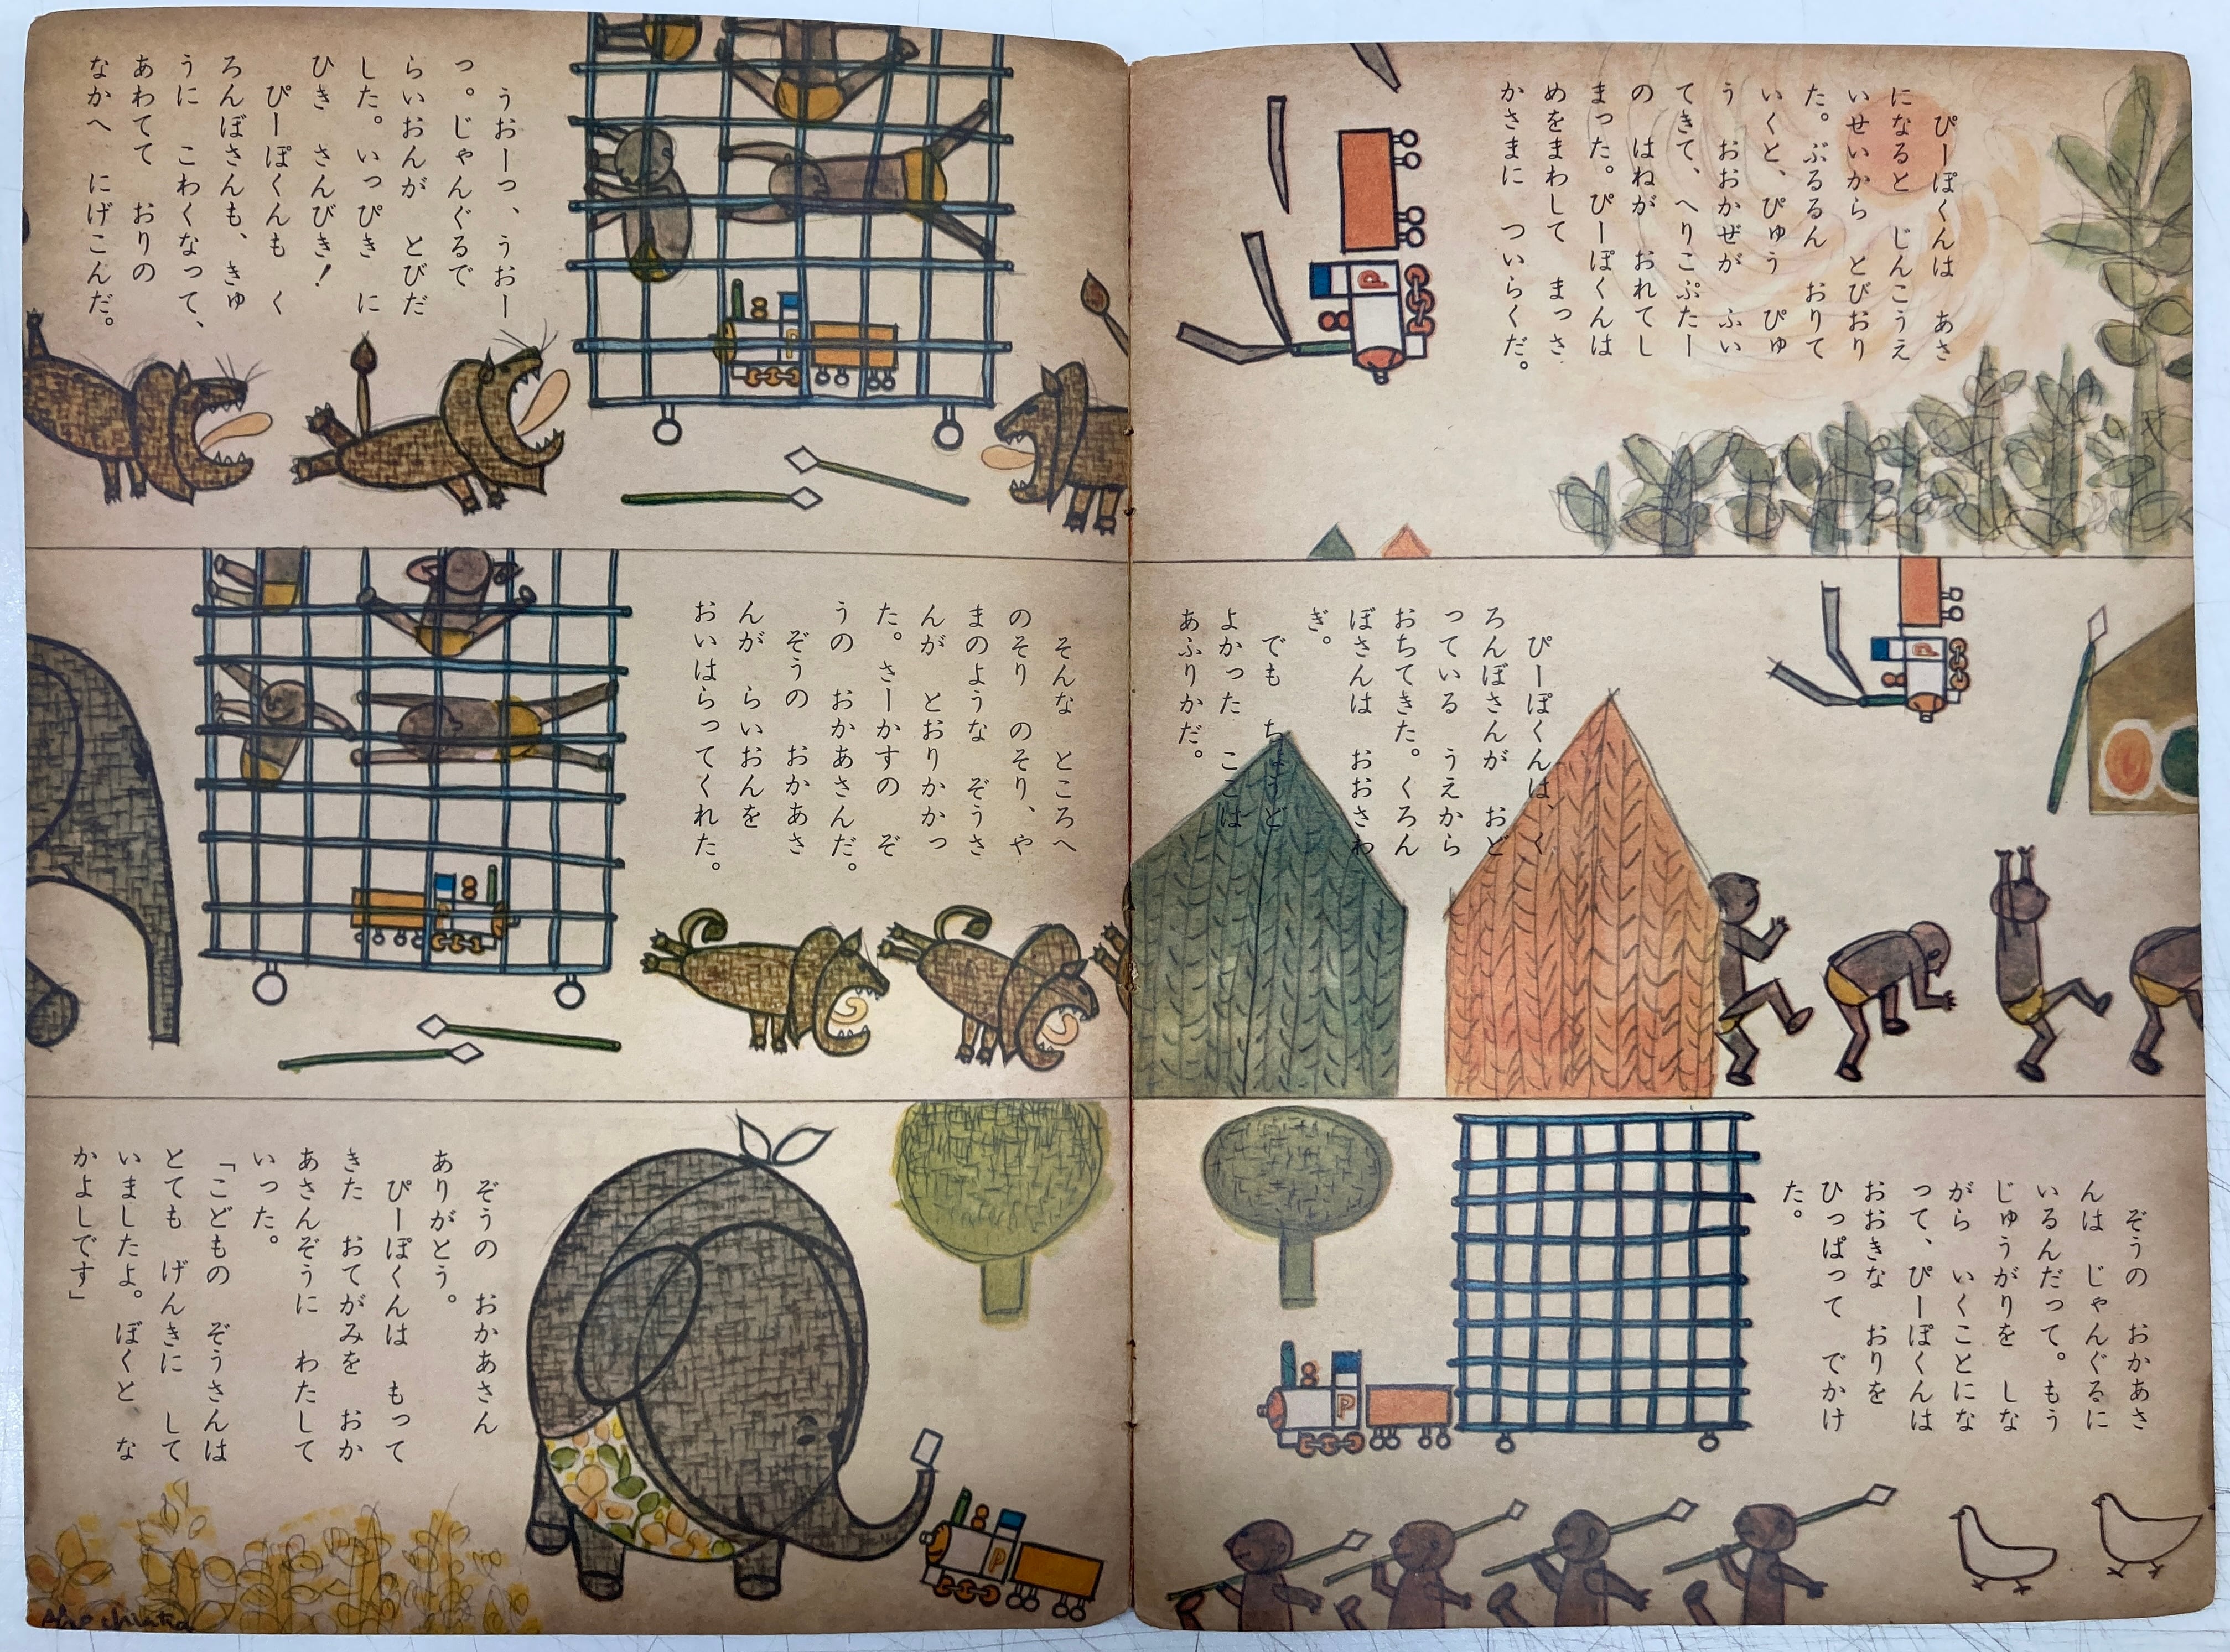 ぴーぽくんは　あさ
になると　じんこうえ
いせいから　とびおり
た。ぶるるん　おりて
いくと、ぴゅう　ぴゅ
う　おおかぜが　ふい
てきて、へりこぷたー
の　はねが　おれてし
まった。ぴーぽくんは
めをまわして　まっさ
かさまに　ついらくだ。
ぴーぽくんは、く
ろんぼさんが　おど
っている　うえから
おちてきた。くろん
ぼさんは　おおさわ
ぎ。
でも　ちょうど
よかった　ここは
あふりかだ。
ぞうの　おかあさ
んは　じゃんぐるに
いるんだって。もう
じゅうがりを　しな
がら　いくことにな
って、ぴーぽくんは
おおきな　おりを
ひっぱって　でかけ
た。
うおーっ、うおー
っ。じゃんぐるで
らいおんが　とびだ
した。いっぴき　に
ひき　さんびき！
ぴーぽくんも　く
ろんぼさんも、きゅ
うに　こわくなって、
あわてて　おりの
なかへ　にげこんだ。
そんな　ところへ
のそり　のそり、や
まのような　ぞうさ
んが　とおりかかっ
た。さーかすの　ぞ
うの　おかあさんだ。
ぞうの　おかあさ
んが　らいおんを
おいはらってくれた。
ぞうの　おかあさん
ありがとう。
ぴーぽくんは　もって
きた　おてがみを　おか
あさんぞうに　わたして
いった。
「こどもの　ぞうさんは
とても　げんきに　して
いましたよ。ぼくと　な
かよしです」
P
P
P
P
P